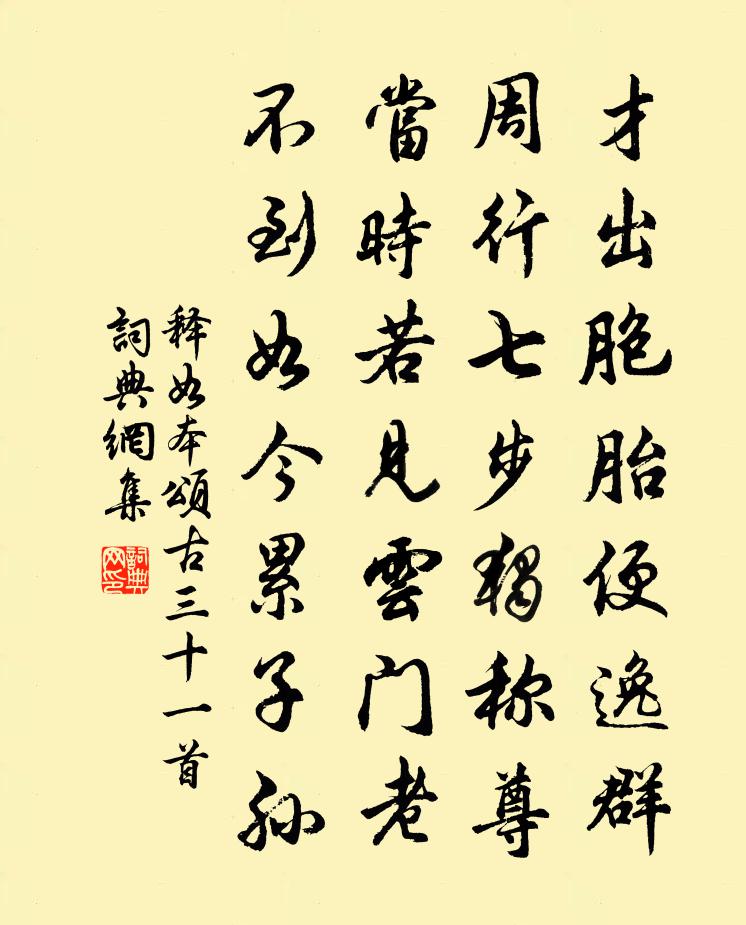 才出胞胎便逸群
周行七步独称尊
當時若見雲门老
不到如今累子孙
释如本頌古三十一首
詞典網集
詞典网印